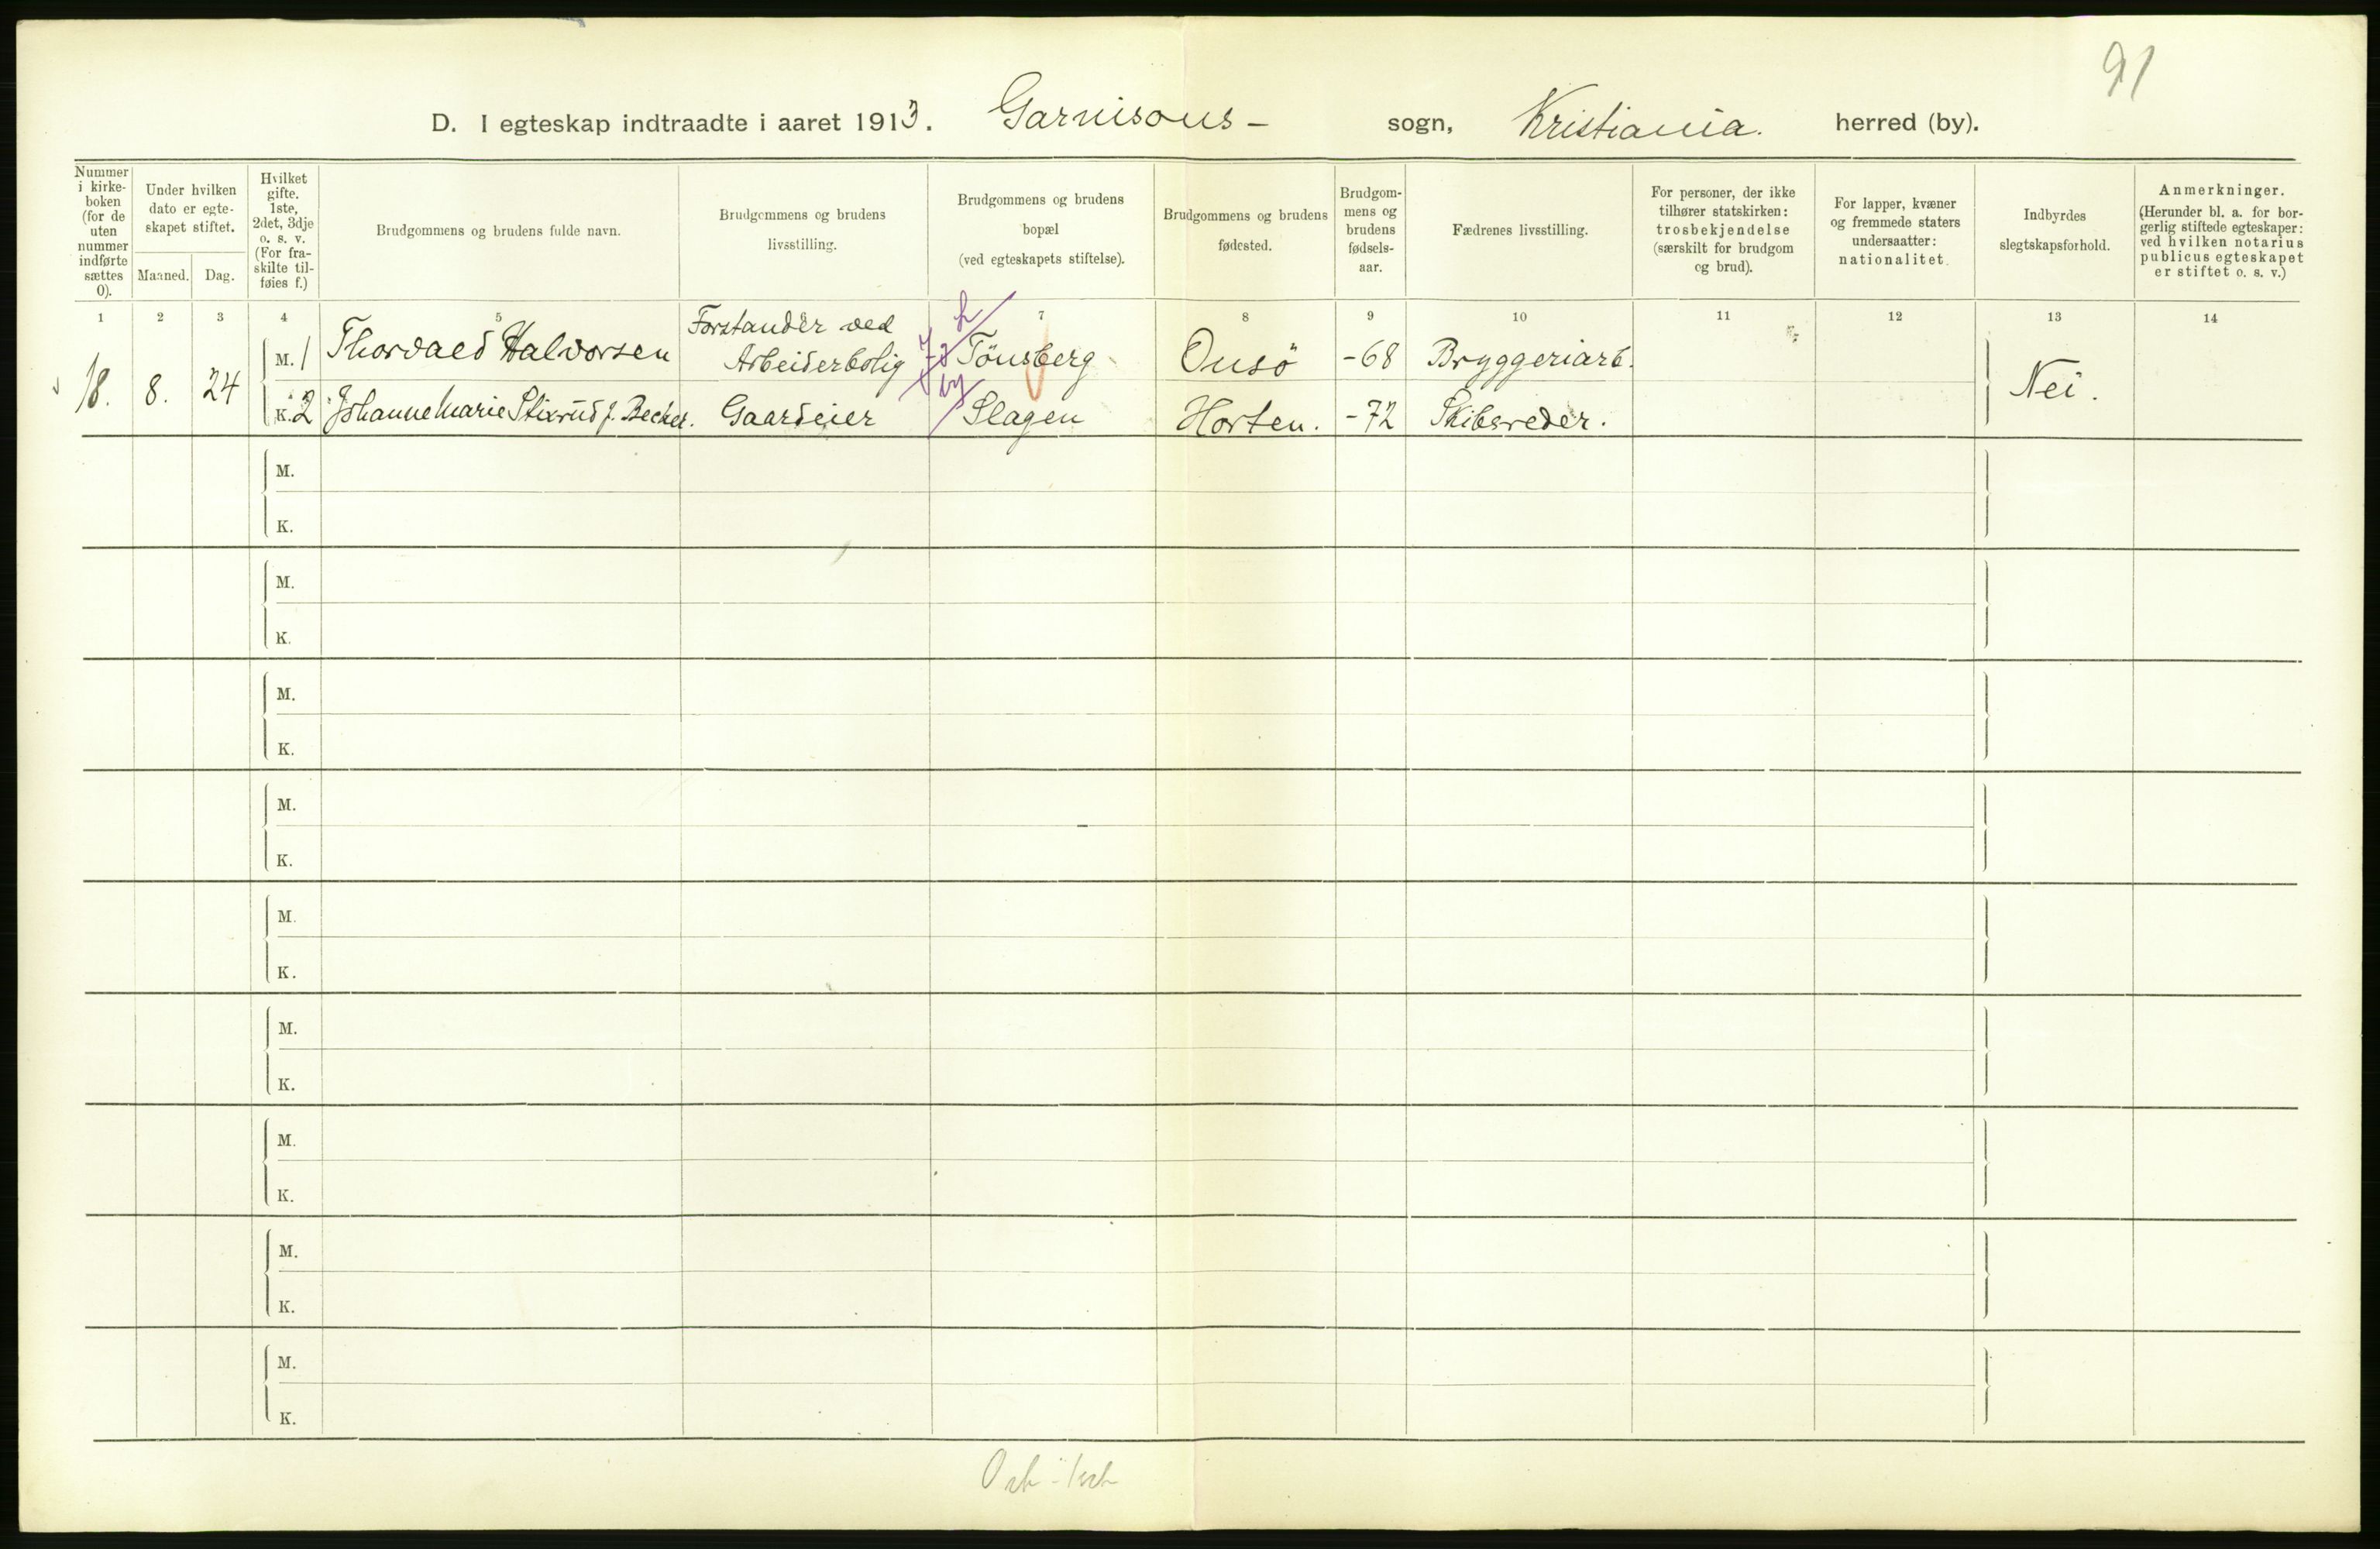 91
D. I egteskap indtraadte i aaret 1913. Garnisons- sogn, Kristiania. herred (by).
Nummer i kirke-boken (for de uten nummer indførte sættes 0).
Under hvilken dato er egte-skapet stiftet.
Maaned. Dag.
Hvilket gifte. 1ste, 2det, 3dje o. s. v. (For fra-skilte til-føies f.)
Brudgommens og brudens fulde navn.
Brudgommens og brudens livsstilling.
Brudgommens og brudens bopæl (ved egteskapets stiftelse).
Brudgommens og brudens fødested.
Brudgom-mens og brudens fødsels-aar.
Fædrenes livsstilling.
For personer, der ikke tilhører statskirken: trosbekjendelse (særskilt for brudgom og brud).
For lapper, kvæner og fremmede staters undersaatter: nationalitet.
Indbyrdes slegtskapsforhold.
Anmerkninger. (Herunder bl. a. for bor-gerlig stiftede egteskaper: ved hvilken notarius publicus egteskapet er stiftet o. s. v.)
1 2 3 4 5 7 8 9 10 11 12 13 14
18. 8. 24 M. 1 Thorvald Halvorsen Forstander ved Arbeiderbolig Tönsberg Onsö -68 Bryggeriarb. Nei.
K. 2 Johanne Marie Stixrud f. Becker. Gaardeier Slagen Horten. -72 Skibsreder.
by
M.
K.
M.
K.
M.
K.
M.
K.
M.
K.
M.
K.
M.
K.
M.
K.
M.
K.